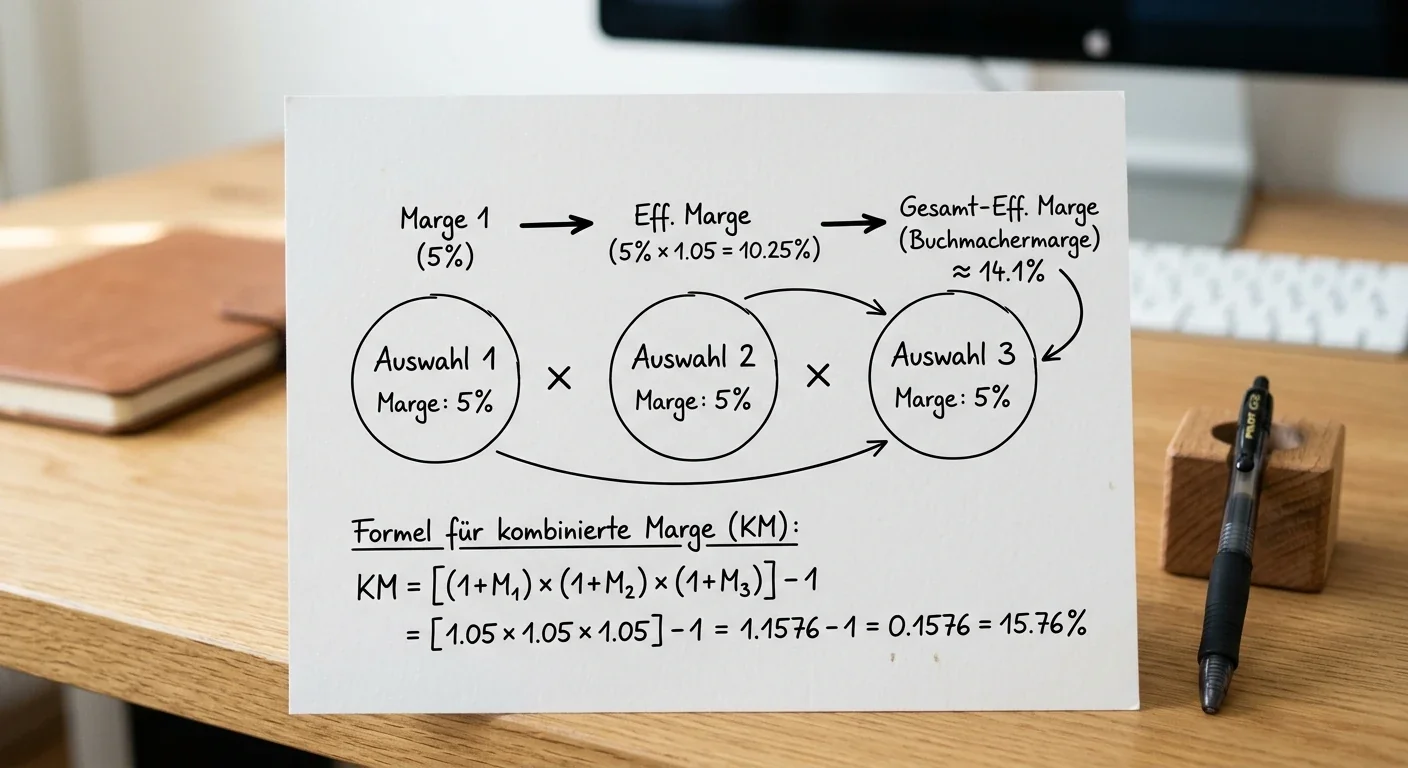 Marge 1
(5%)
Eff. Marge
(5% × 1.05 = 10.25%)
Gesamt-Eff. Marge
(Buchmachermarge)
≈ 14.1%
Auswahl 1
Marge: 5%
×
Auswahl 2
Marge: 5%
×
Auswahl 3
Marge: 5%
Formel für kombinierte Marge (KM):
KM = [(1+M₁) × (1+M₂) × (1+M₃)] – 1
= [1.05 × 1.05 × 1.05] – 1 = 1.1576 – 1 = 0.1576 = 15.76%
PILOT G2